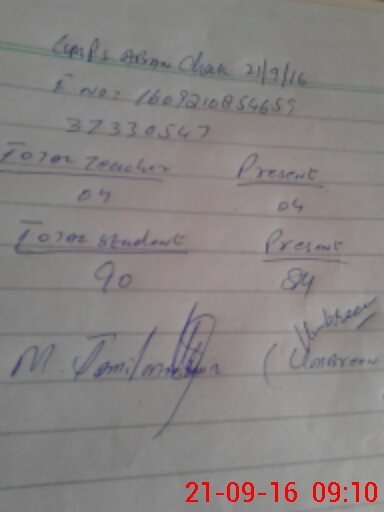 Chak 21/9/16
I no: 1609210854659
37330547
Total Teacher Present
04 04
Total student Present
90 84
Umbreen
M. Jamil (Umbreen
21-09-16 09:10